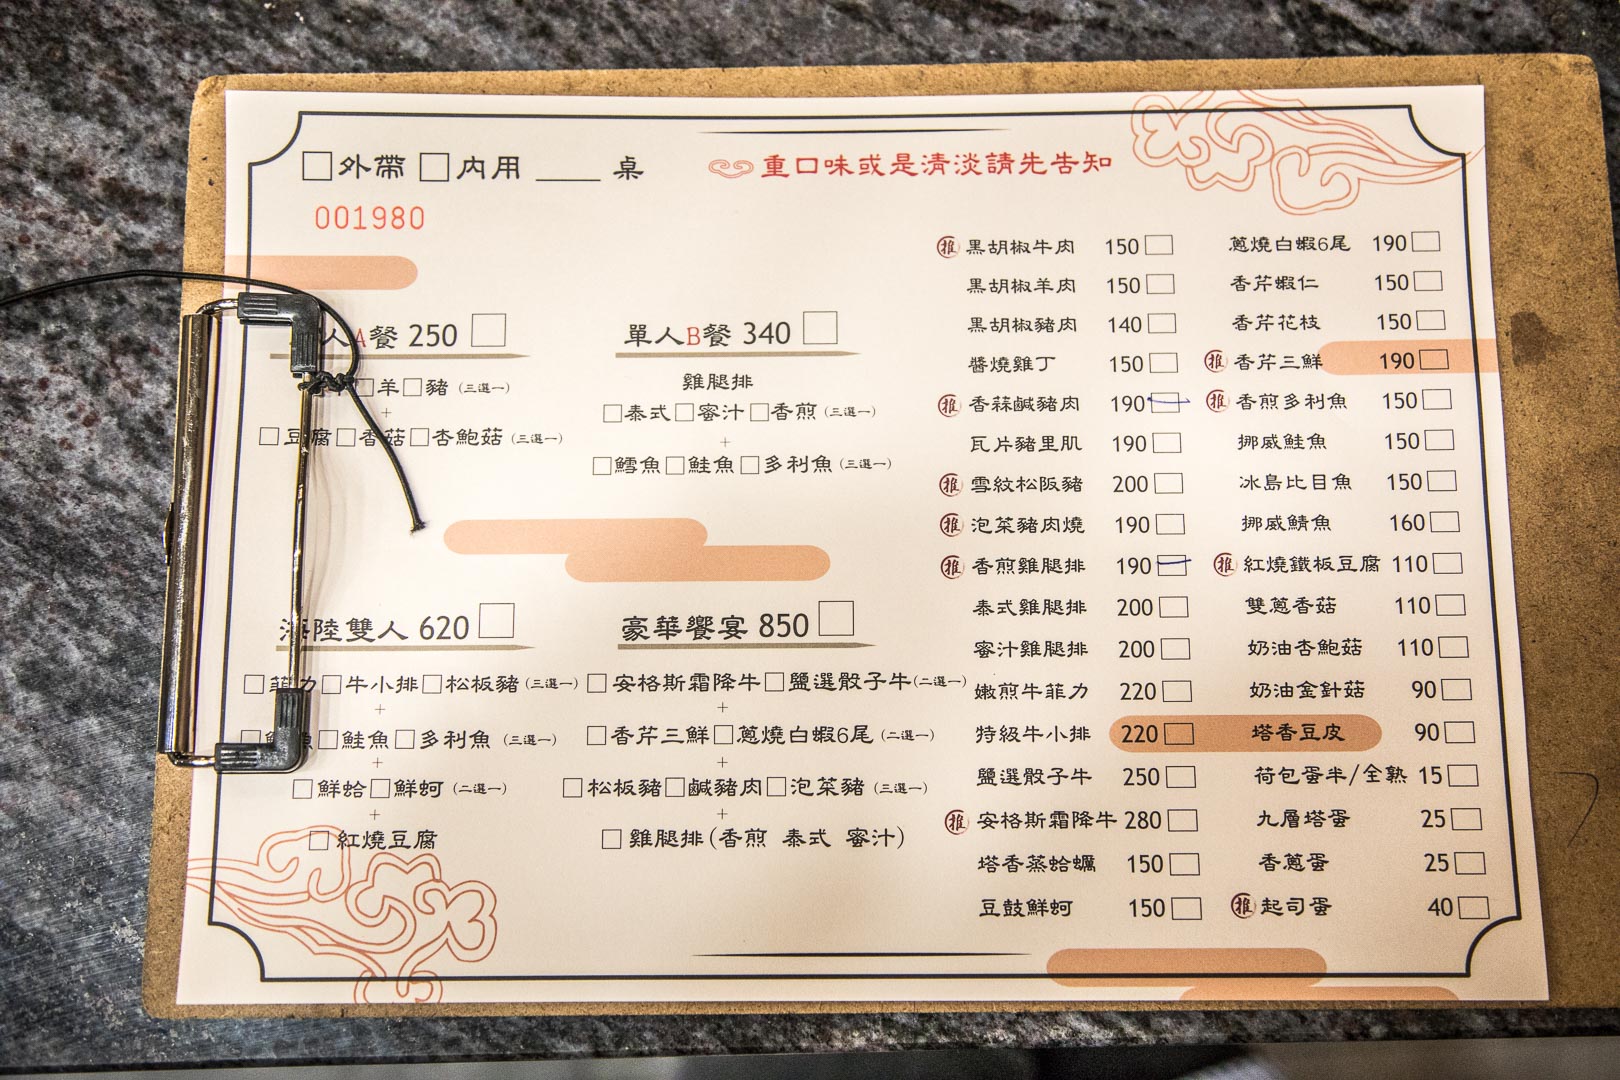 □外帶 □內用 ____ 桌
重口味或是清淡請先告知
001980
人A餐 250 □
□羊□豬 (三選一)
+
□豆腐□香菇□杏鮑菇 (三選一)
單人B餐 340 □
雞腿排
□泰式□蜜汁□香煎 (三選一)
+
□鱈魚□鮭魚□多利魚 (三選一)
海陸雙人 620 □
□菲力□牛小排□松板豬 (三選一)
+
魚□鮭魚□多利魚 (三選一)
+
□鮮蛤□鮮蚵 (二選一)
+
□紅燒豆腐
豪華饗宴 850 □
□安格斯霜降牛□鹽選骰子牛(二選一)
+
□香芹三鮮□蔥燒白蝦6尾 (二選一)
+
□松板豬□鹹豬肉□泡菜豬 (三選一)
+
□雞腿排(香煎 泰式 蜜汁)
推 黑胡椒牛肉 150 □
黑胡椒羊肉 150 □
黑胡椒豬肉 140 □
醬燒雞丁 150 □
推 香蒜鹹豬肉 190 □
瓦片豬里肌 190 □
推 雪紋松阪豬 200 □
推 泡菜豬肉燒 190 □
推 香煎雞腿排 190 □
泰式雞腿排 200 □
蜜汁雞腿排 200 □
嫩煎牛菲力 220 □
特級牛小排 220 □
鹽選骰子牛 250 □
推 安格斯霜降牛 280 □
塔香蒸蛤蠣 150 □
豆鼓鮮蚵 150 □
蔥燒白蝦6尾 190 □
香芹蝦仁 150 □
香芹花枝 150 □
推 香芹三鮮 190 □
推 香煎多利魚 150 □
挪威鮭魚 150 □
冰島比目魚 150 □
挪威鯖魚 160 □
推 紅燒鐵板豆腐 110 □
雙蔥香菇 110 □
奶油杏鮑菇 110 □
奶油金針菇 90 □
塔香豆皮 90 □
荷包蛋半/全熟 15 □
九層塔蛋 25 □
香蔥蛋 25 □
推 起司蛋 40 □